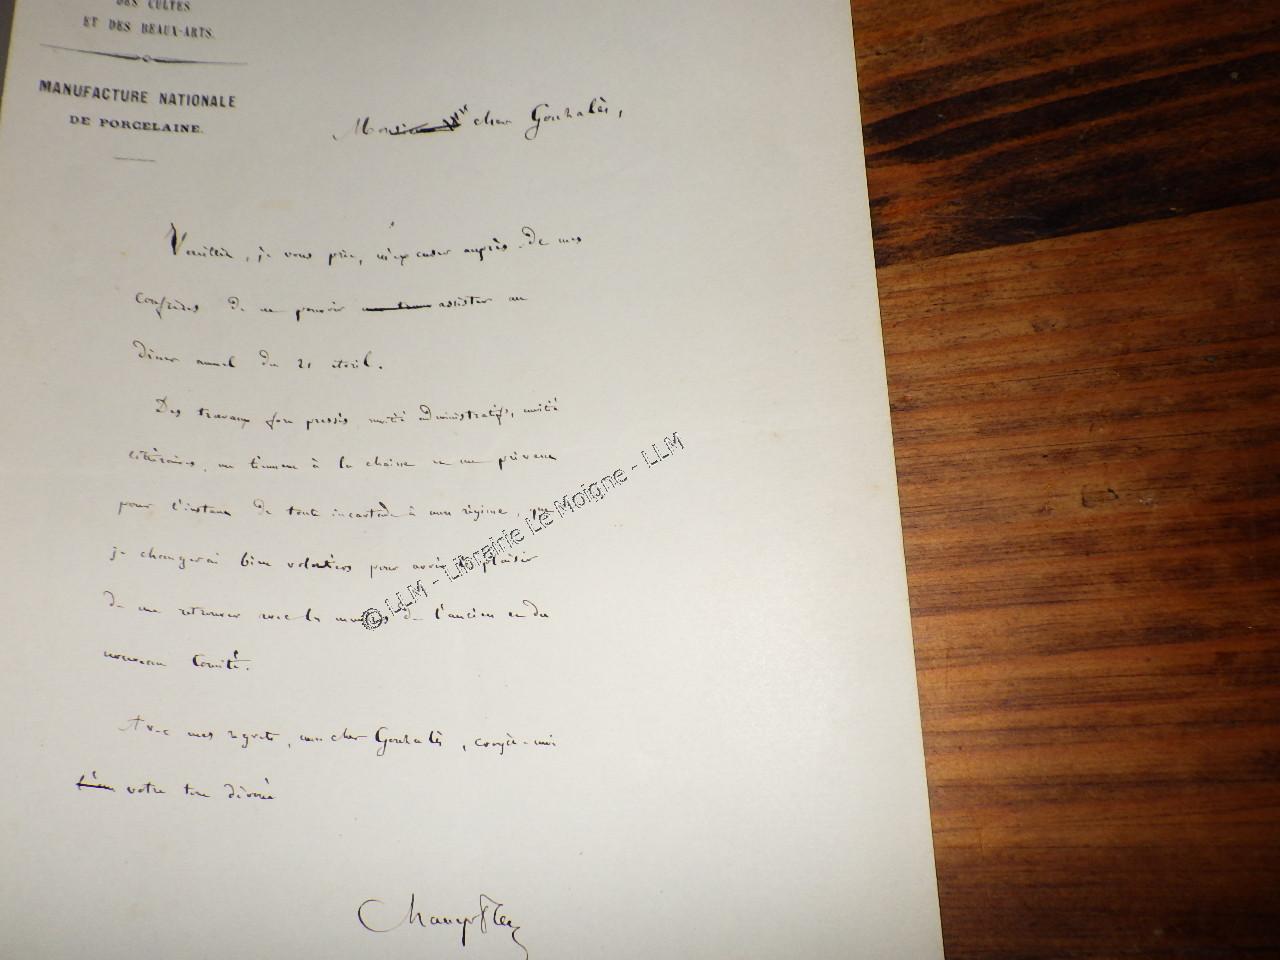 DES CULTES
ET DES BEAUX-ARTS.
MANUFACTURE NATIONALE
DE PORCELAINE.
Mon cher Gonzalès,
Veuillez, je vous prie, m'excuser auprès de mes
confrères de ne pouvoir assister au
diner annuel du 21 avril.
Des travaux fort pressés, moitié administratifs, moitié
littéraires, me tiennent à la chaine et me privent
pour l'instant de toute incartade à mon régime, que
je changerai bien volontiers pour avoir le plaisir
de me retrouver avec les membres de l'ancien et du
nouveau Comité.
Avec mes regrets, mon cher Gonzalès, croyez-moi
bien votre tout dévoué
Champfleury
© LLM - Librairie Le Moigne - LLM